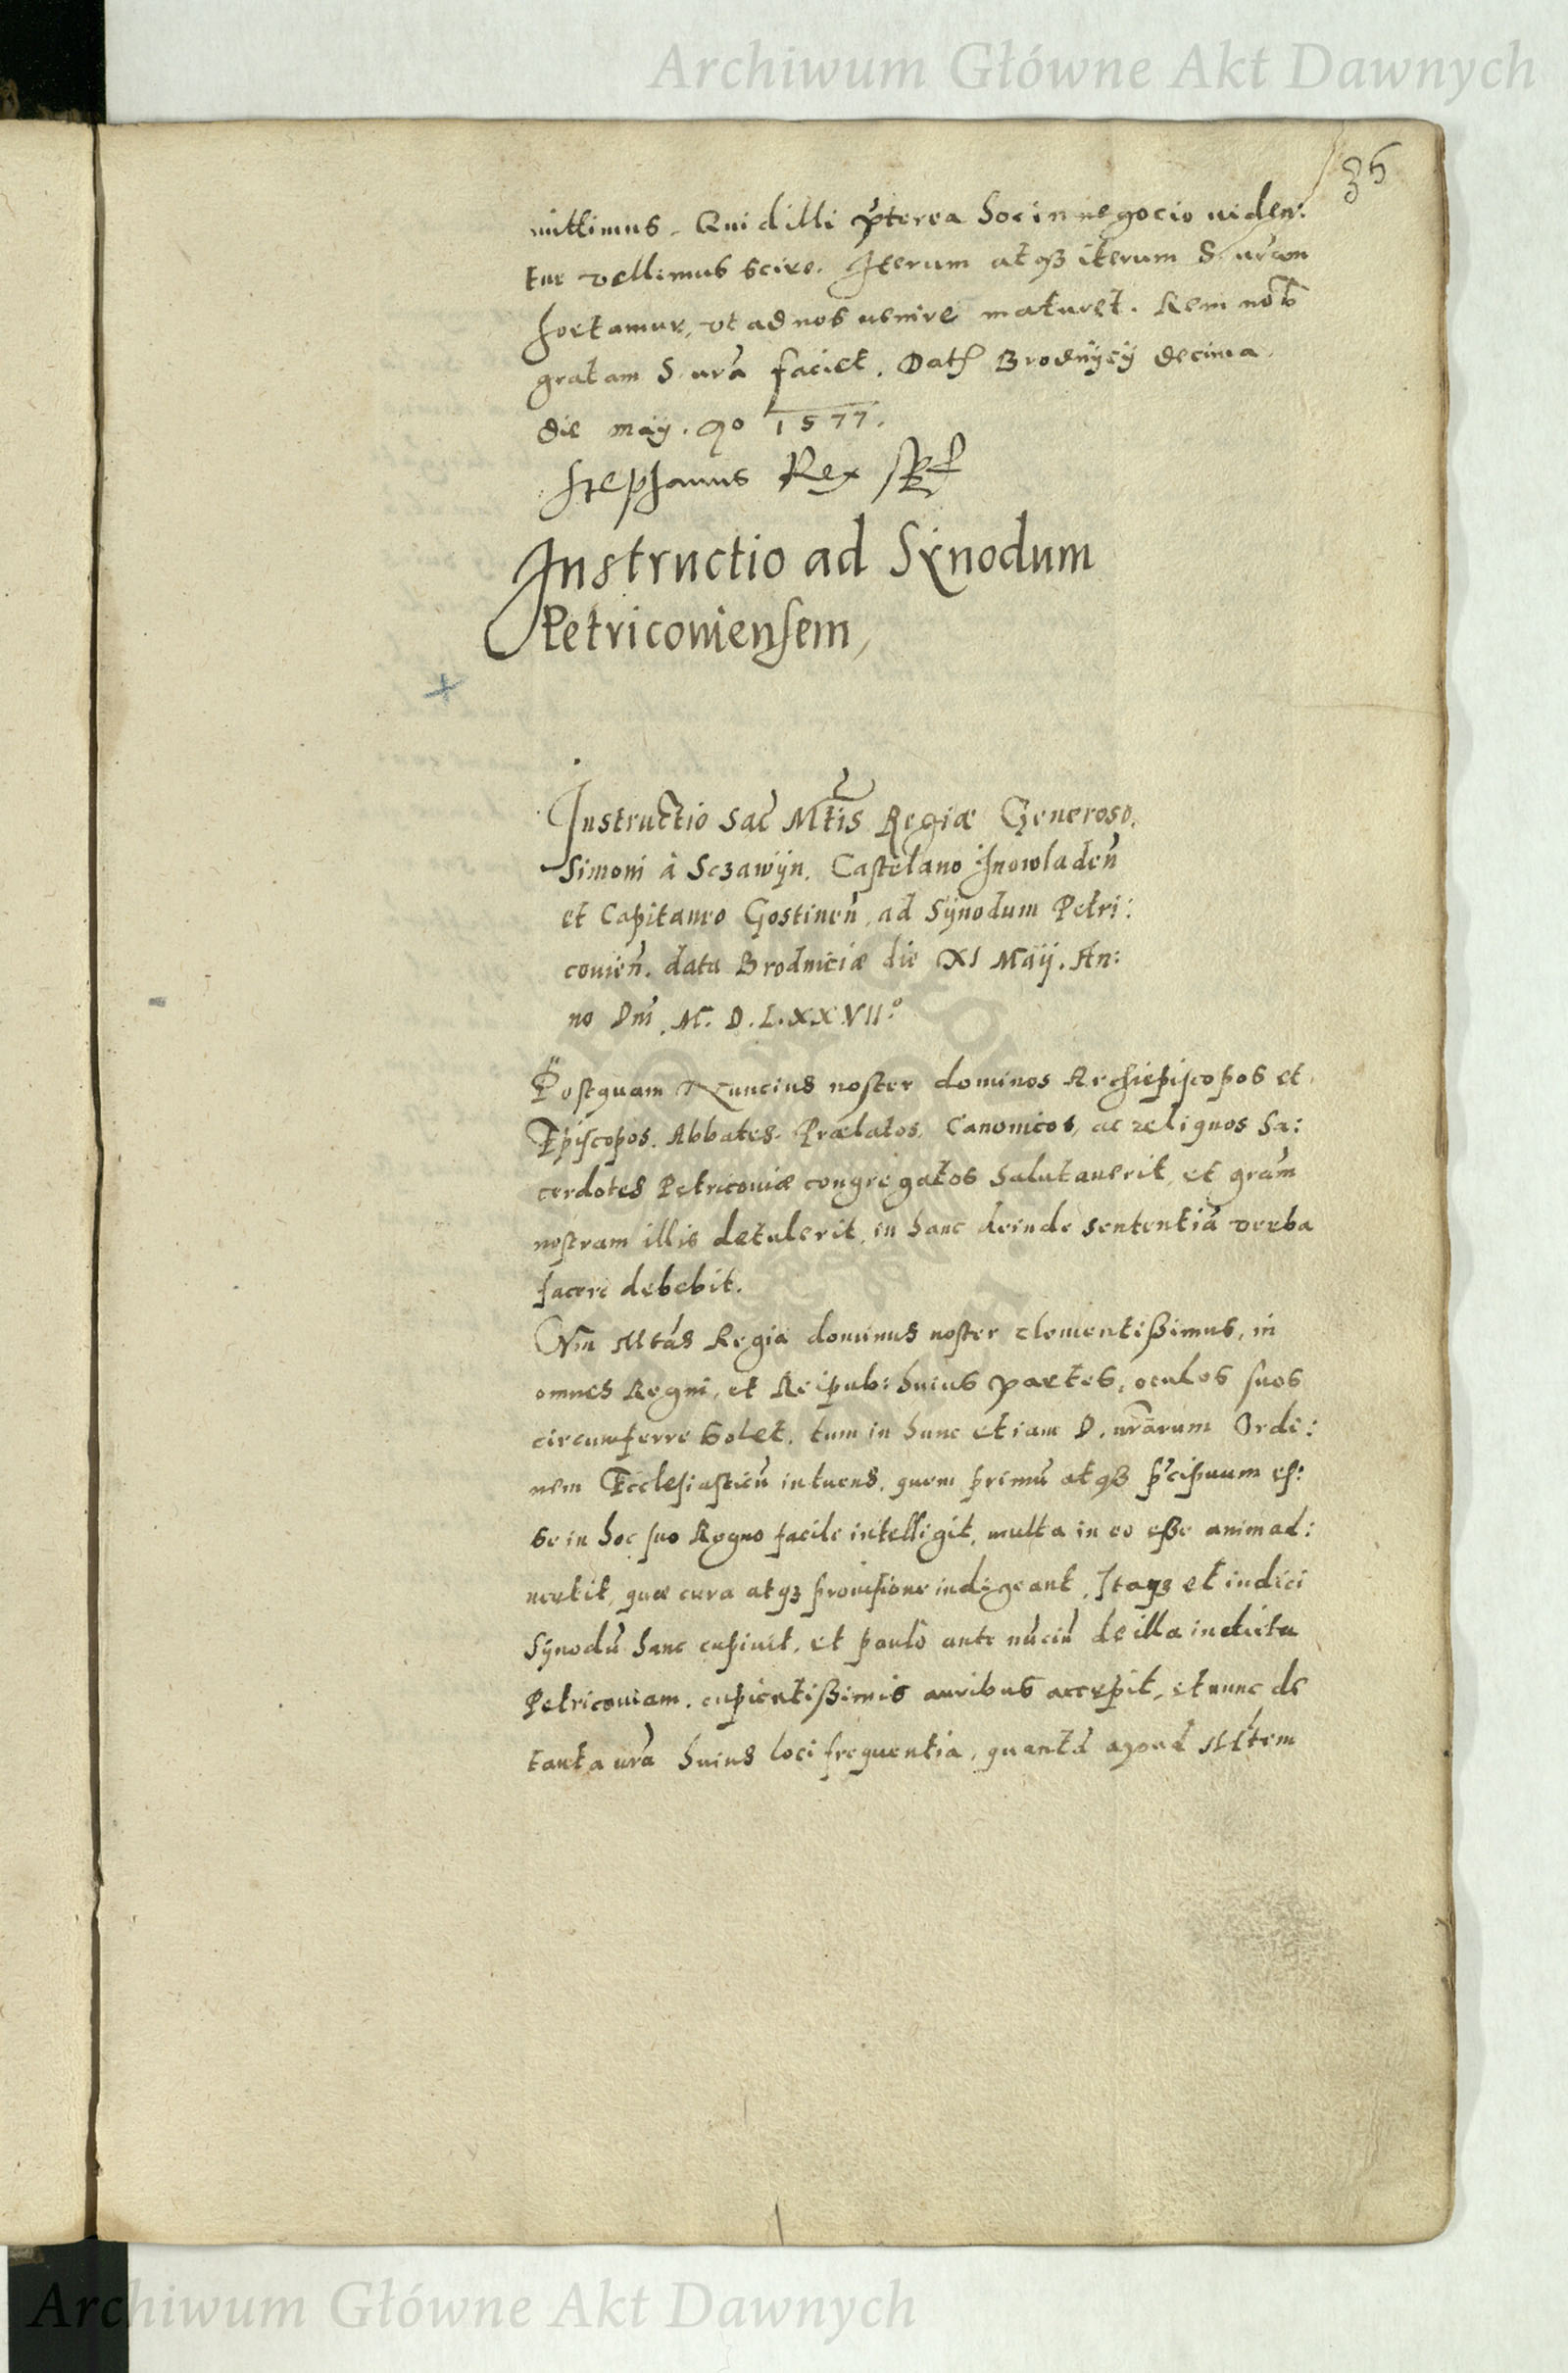 Archiwum Główne Akt Dawnych
36
mittimus. Quid illi p̃terea hoc in negocio uiden:
tur vellimus scire. Iterum atqȝ iterum S. uram
hortamur, vt ad nos uenire maturet. Rem nob̃
gratam S. ura͂ faciet. Dat Brodnÿcÿ decima
die maÿ. 1577.
Stephanus Rex sst
Instructio ad Sÿnodum
Petricouiensem,
Instructio Sac̃ Mt̃is Regiæ Generoso
Simoni à Sczawÿn, Castelano Inowladeñ
et Capitaneo Gostineñ, ad Sÿnodum Petri:
couieñ. data Brodniciæ die XI Maÿ. An:
no Dñi. M. D. L. XX VII°
Postquam Nuncius noster dominos Archiepiscopos et
Episcopos. Abbates. Prælatos, Canonicos, ac reliquos Sa:
cerdotes Petricouiæ congregatos salutauerit, et gra͂m
nostram illis detulerit, in hanc deinde sententiã verba
facere debebit.
Mt̃as Regia dominus noster clementißimus, in
omnes Regni, et Reipub: huius partes, oculos suos
circumferre solet, tum in hunc etiam D. ura͂rum Ordi:
nem Ecclesiasticũ intuens, quem primũ atqȝ p̃cipuum es:
se in hoc suo Regno facile intelligit, multa in eo eße animad:
uertit, quæ cura atqȝ prouisione indigeant, Itaqȝ et indici
Sÿnodũ hanc cupiuit, et paulò ante nũciũ de illa indicta
Petricouiam, cupientißimis auribus accepit, et nunc de
tanta ura͂ huius loci frequentia, quanta apud Mt̃em
Archiwum Główne Akt Dawnych